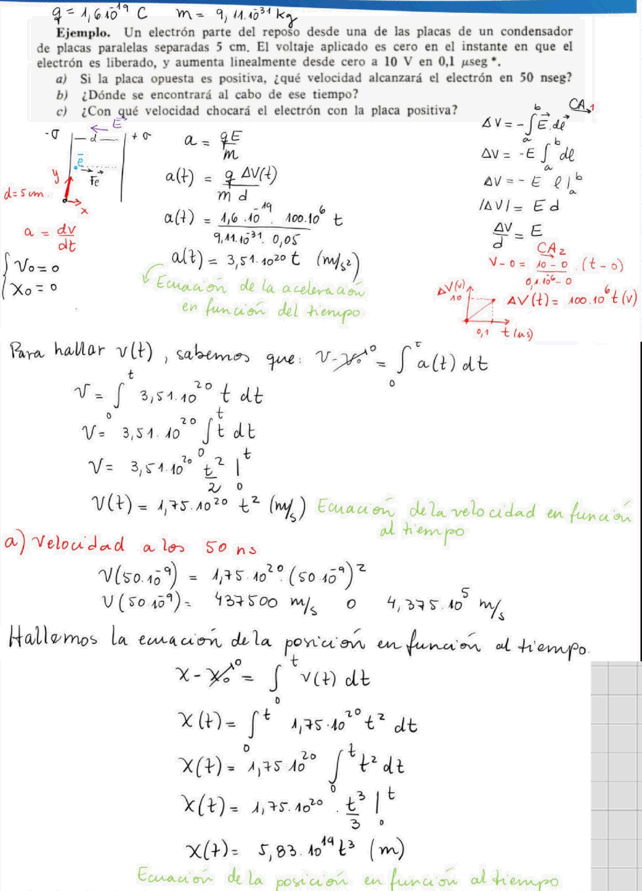 q = 1,6·10⁻¹⁹ C    m = 9,11·10⁻³¹ kg
Ejemplo. Un electrón parte del reposo desde una de las placas de un condensador
de placas paralelas separadas 5 cm. El voltaje aplicado es cero en el instante en que el
electrón es liberado, y aumenta linealmente desde cero a 10 V en 0,1 μseg *.
a) Si la placa opuesta es positiva, ¿qué velocidad alcanzará el electrón en 50 nseg?
b) ¿Dónde se encontrará al cabo de ese tiempo?
c) ¿Con qué velocidad chocará el electrón con la placa positiva?
-σ  d  +σ  E
e  Fe
y  x
d = 5 cm
a = dv/dt
V₀ = 0
X₀ = 0
a = qE/m
a(t) = q ΔV(t) / m d
a(t) = 1,6·10⁻¹⁹ · 100·10⁶ t / 9,11·10⁻³¹ · 0,05
a(t) = 3,51·10²⁰ t (m/s²)
Ecuación de la aceleración
en función del tiempo
CA1
ΔV = -∫ₐᵇ E dℓ
ΔV = -E ∫ₐᵇ dℓ
ΔV = -E ℓ |ₐᵇ
|ΔV| = E d
ΔV/d = E
CA2
V - 0 = (10 - 0)/(0,1·10⁻⁶ - 0) · (t - 0)
ΔV(V)
10
0,1  t (μs)
ΔV(t) = 100·10⁶ t (V)
Para hallar v(t), sabemos que: V - V₀⁰ = ∫₀ᵗ a(t) dt
V = ∫₀ᵗ 3,51·10²⁰ t dt
V = 3,51·10²⁰ ∫₀ᵗ t dt
V = 3,51·10²⁰ t²/2 |₀ᵗ
V(t) = 1,75·10²⁰ t² (m/s) Ecuación de la velocidad en función
al tiempo
a) Velocidad a los 50 ns
V(50·10⁻⁹) = 1,75·10²⁰·(50·10⁻⁹)²
V(50·10⁻⁹) = 437500 m/s o 4,375·10⁵ m/s
Hallemos la ecuación de la posición en función al tiempo.
X - X₀⁰ = ∫₀ᵗ v(t) dt
X(t) = ∫₀ᵗ 1,75·10²⁰ t² dt
X(t) = 1,75·10²⁰ ∫₀ᵗ t² dt
X(t) = 1,75·10²⁰ · t³/3 |₀ᵗ
X(t) = 5,83·10¹⁹ t³ (m)
Ecuación de la posición en función al tiempo